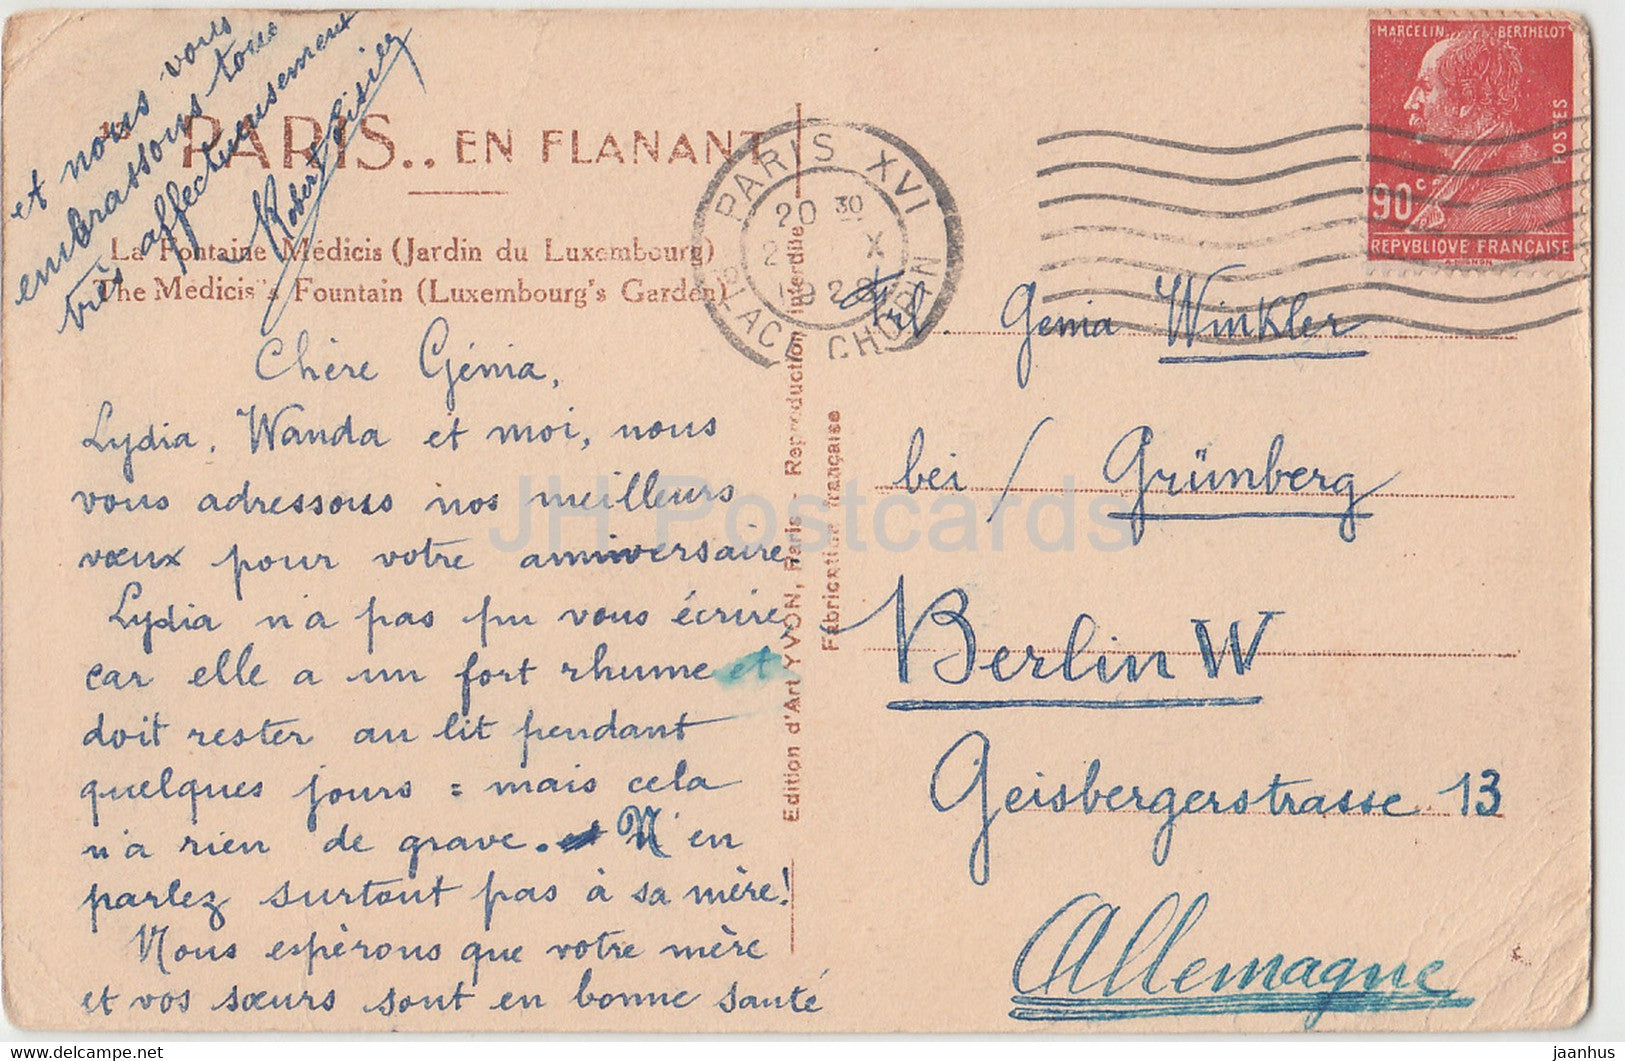 PARIS.. EN FLANANT
La Fontaine Médicis (Jardin du Luxembourg)
The Medicis's Fountain (Luxembourg's Garden)
Chère Génia,
Lydia, Wanda et moi, nous
vous adressons nos meilleurs
vœux pour votre anniversaire
Lydia n'a pas pu vous écrire,
car elle a un fort rhume et
doit rester au lit pendant
quelques jours = mais cela
n'a rien de grave. N'en
parlez surtout pas à sa mère!
Nous espérons que votre mère
et vos sœurs sont en bonne santé
et nous vous
embrassons tous
très affectueusement
Robert
Edition d'Art YVON, Paris - Reproduction Interdite
Fabrication française
PARIS XVI
20 30
2 X
192
PLACE CHOPIN
MARCELIN BERTHELOT
POSTES
90c
REPVBLIQVE FRANÇAISE
Frl. Genia Winkler
bei / Grünberg
Berlin W
Geisbergerstrasse 13
Allemagne
JH Postcards
jaanhus @ www.delcampe.net
jaanhus